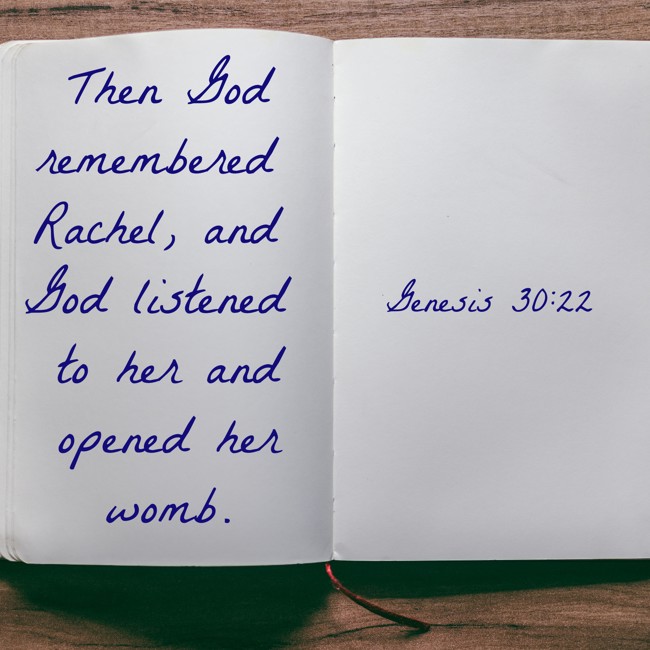 Then God
remembered
Rachel, and
God listened
to her and
opened her
womb.
Genesis 30:22